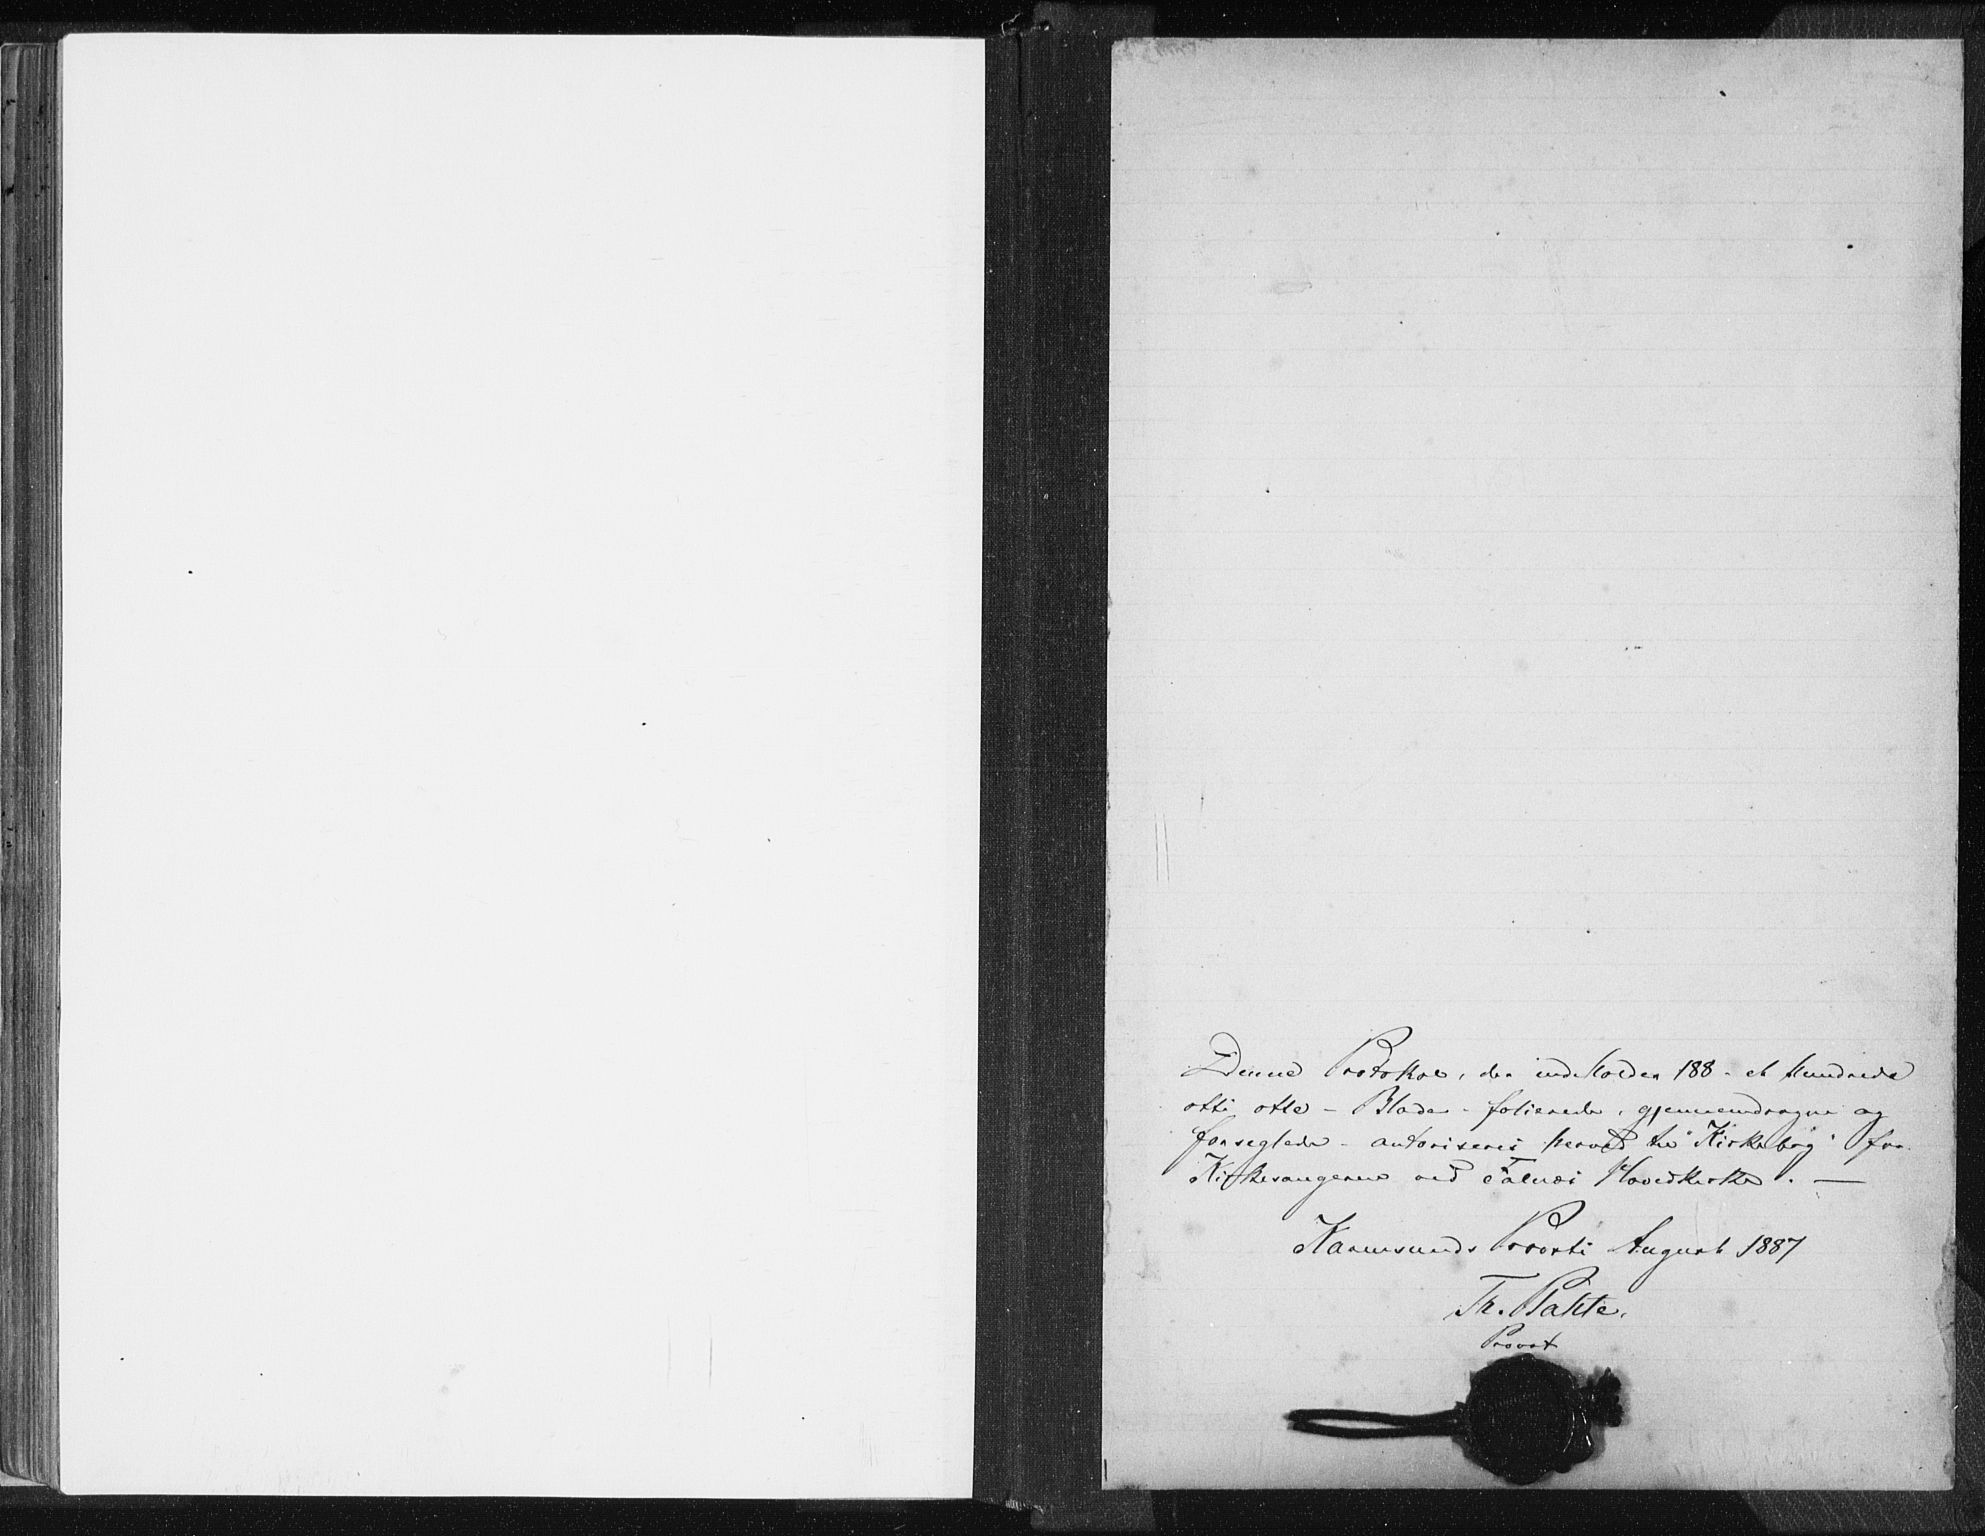 Denne Protokol, der indeholder 188 - et hundrede
otti otte - Blade - folierede, gjennemdragne og
forseglede - autoriseres herved til "Kirkebog" for
Kirkesangeren ved Falnæs Hovedkirke. —
Karmsunds Provsti August 1887
Th.
Provst